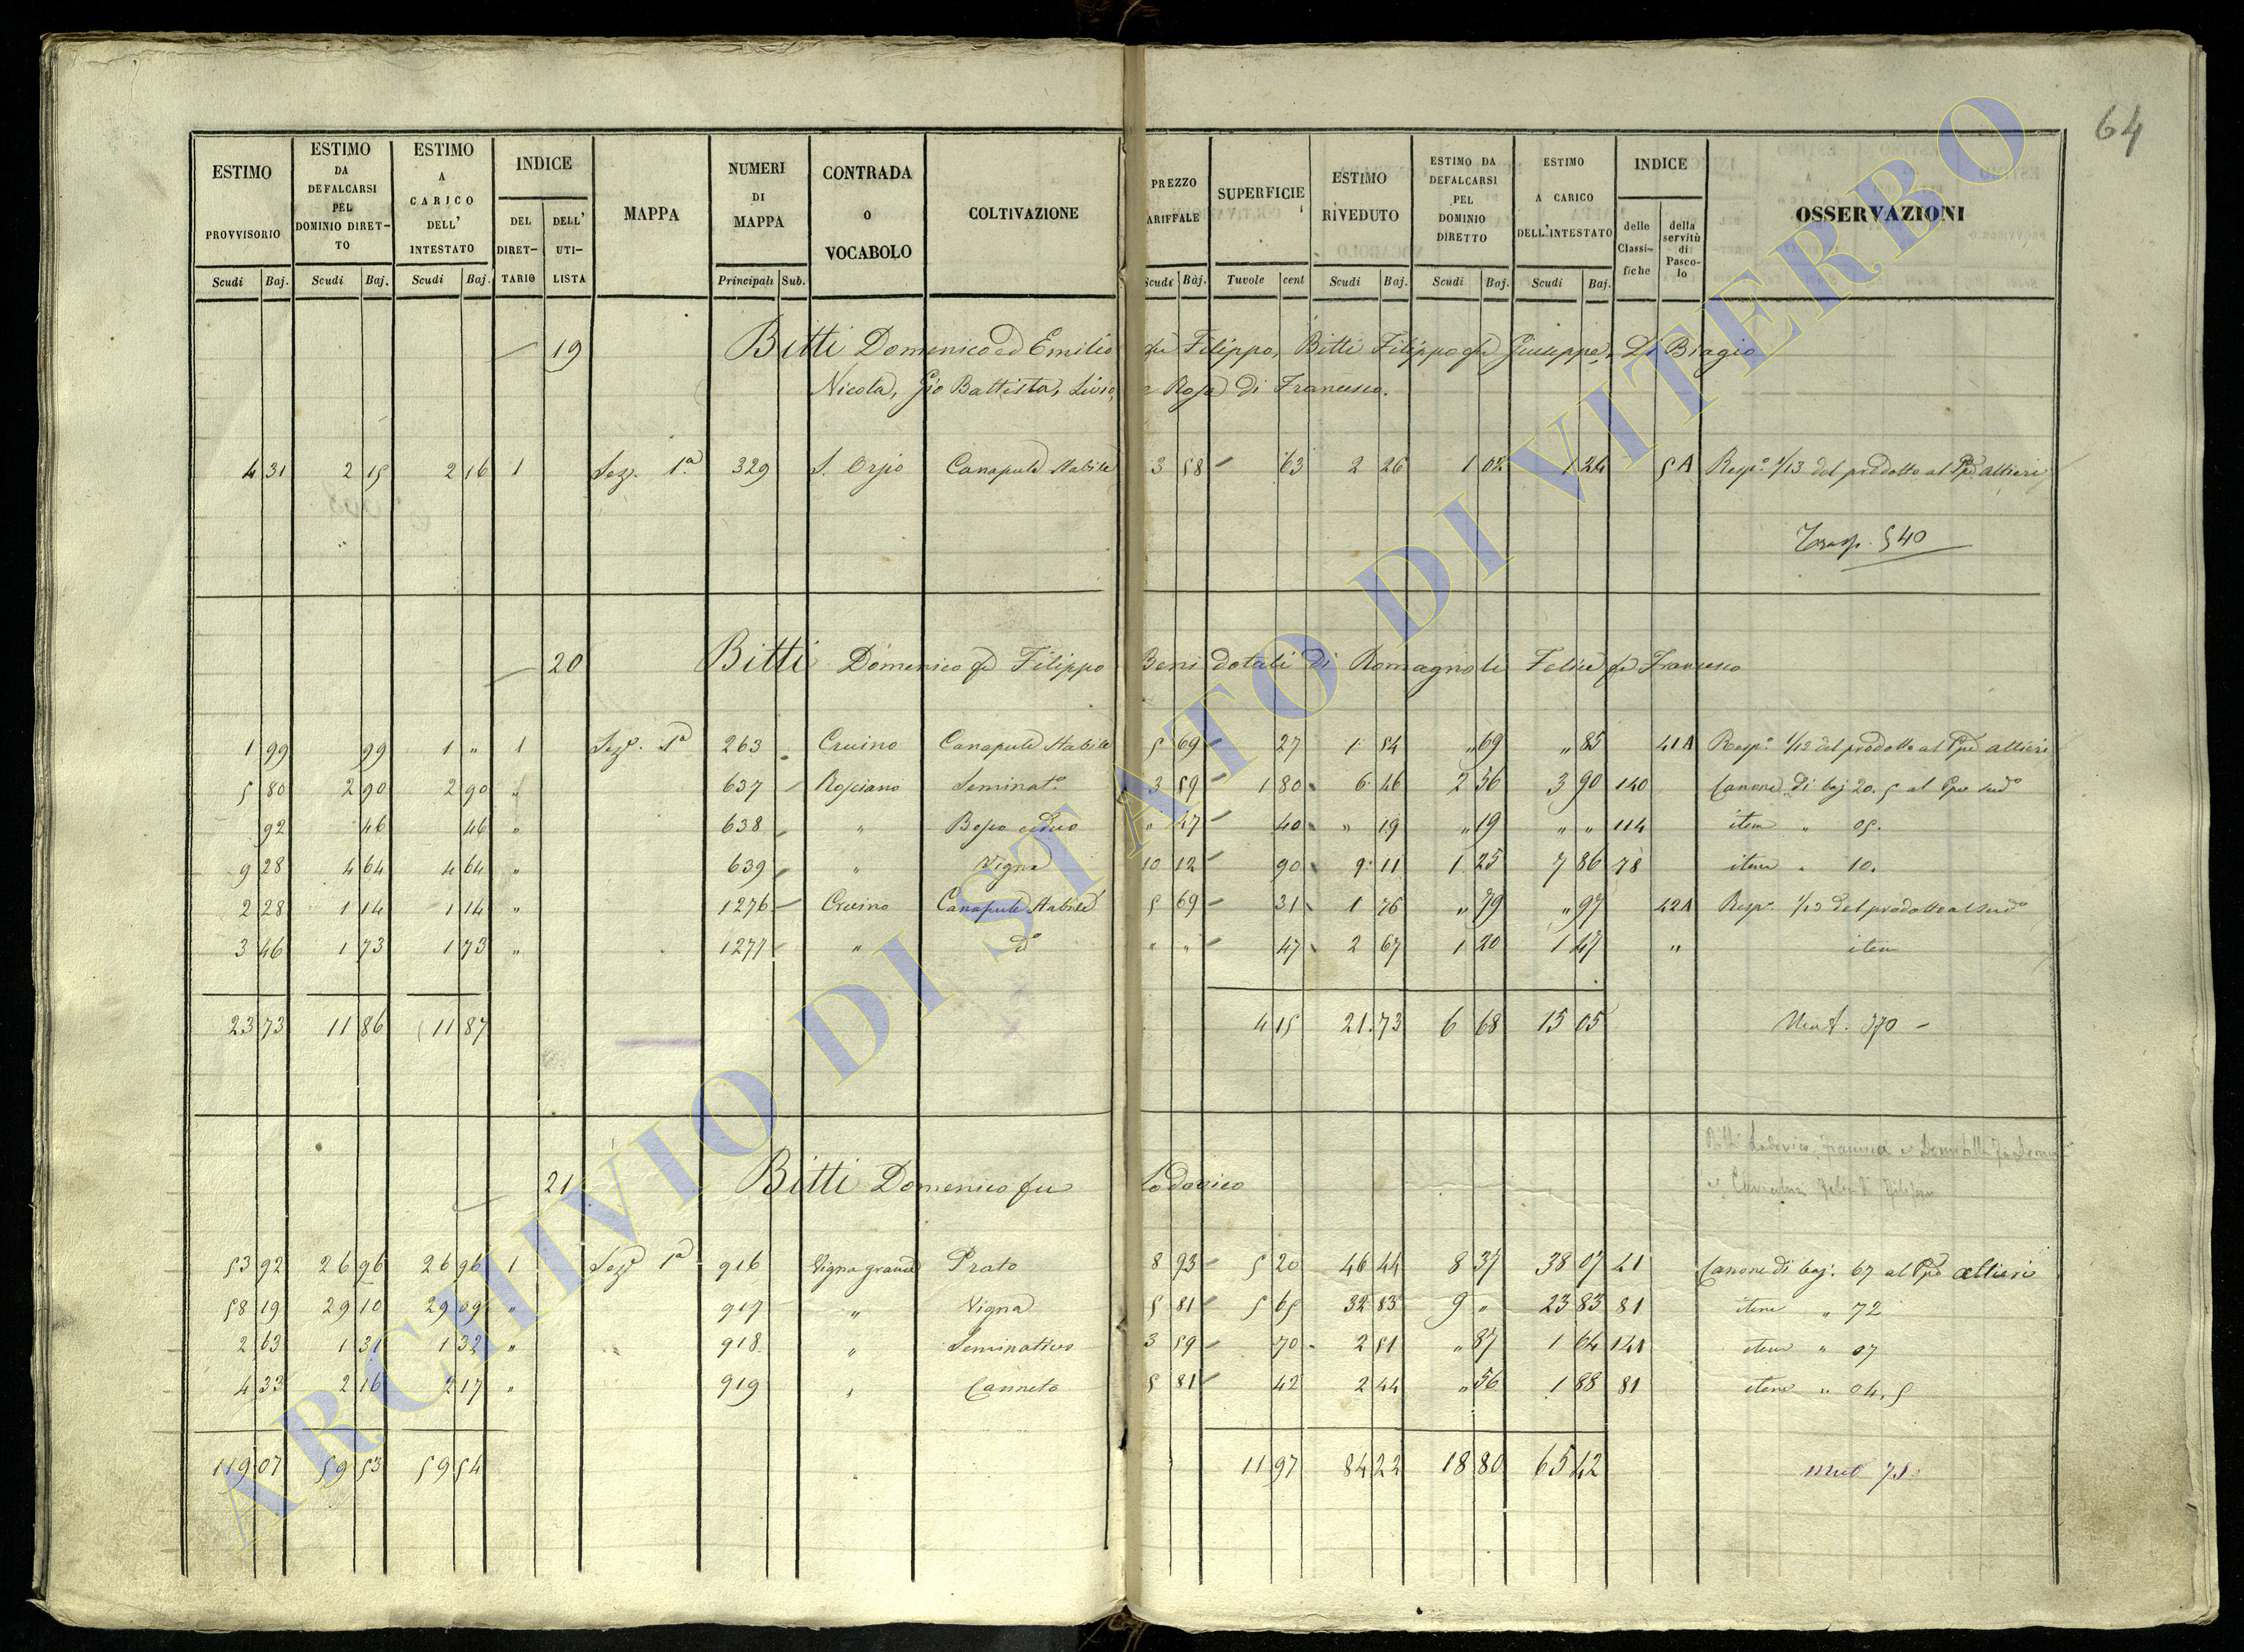 64
ESTIMO PROVVISORIO Scudi Baj.
ESTIMO DA DEFALCARSI PEL DOMINIO DIRETTO Scudi Baj.
ESTIMO A CARICO DELL' INTESTATO Scudi Baj.
INDICE DEL DIRETTARIO DELL' UTILISTA
MAPPA
NUMERI DI MAPPA Principali Sub.
CONTRADA O VOCABOLO
COLTIVAZIONE
PREZZO ARIFFALE Scudi Baj.
SUPERFICIE Tavole cent
ESTIMO RIVEDUTO Scudi Baj.
ESTIMO DA DEFALCARSI PEL DOMINIO DIRETTO Scudi Baj.
ESTIMO A CARICO DELL'INTESTATO Scudi Baj.
INDICE delle Classifiche della servitù di Pascolo
OSSERVAZIONI
19 Bitti Domenico ed Emilio fu Filippo, Bitti Filippo fu Giuseppe, Di Biagio
Nicola, Gio Battista, Livio, e Rosa di Francesco.
4 31 2 15 2 16 1 Sez. 1.a 329 S. Orsio Canapule Stabile 3 58 63 2 26 1 02 1 24 5A Resp. 1/13 del prodotto al Ppe Altieri
Trasp. 540
20 Bitti Domenico fu Filippo Beni dotali di Romagnoli Felice fu Francesco
1 99 99 1 " 1 Sez. 1a 263 Cruino Canapule Stabile 5 69 27 1 54 " 69 " 85 41A Resp. 1/13 del prodotto al Ppe Altieri
5 80 2 90 2 90 " 637 Rosciano Seminat.o 3 59 1 80 6 46 2 56 3 90 140 Canone di baj 20.5 al Ppe sud.o
92 46 46 " 638 " Bosco ceduo " 47 40 " 19 " 19 " " 114 item " 05.
9 28 4 64 4 64 " 639 " Vigna 10 12 90 9 11 1 25 7 86 78 item " 10.
2 28 1 14 1 14 " 1276 Cruino Canapule Stabile 5 69 31 1 76 " 79 " 97 42A Resp. 1/13 del prodotto al sud.o
3 46 1 73 1 73 " 1277 " d.o " " 47 2 67 1 20 1 47 " item
23 73 11 86 11 87 4 15 21.73 6 68 15 05 Mut. 370
21 Bitti Domenico fu Lodovico
Bitti Lodovico,
53 92 26 96 26 96 1 Sez. 1a 916 Vigna grande Prato 8 93 5 20 46 44 8 37 38 07 41 Canone di baj. 67 al Ppe Altieri
58 19 29 10 29 09 " 917 " Vigna 5 81 5 65 32 83 9 " 23 83 81 item " 72
2 63 1 31 1 32 " 918 " Seminativo 3 59 70 2 51 " 87 1 64 141 item " 07
4 33 2 16 2 17 " 919 " Canneto 5 81 42 2 44 " 56 1 88 81 item " 04.5
119 07 59 53 59 54 11 97 84 22 18 80 65 42 Mut 71
ARCHIVIO DI STATO DI VITERBO